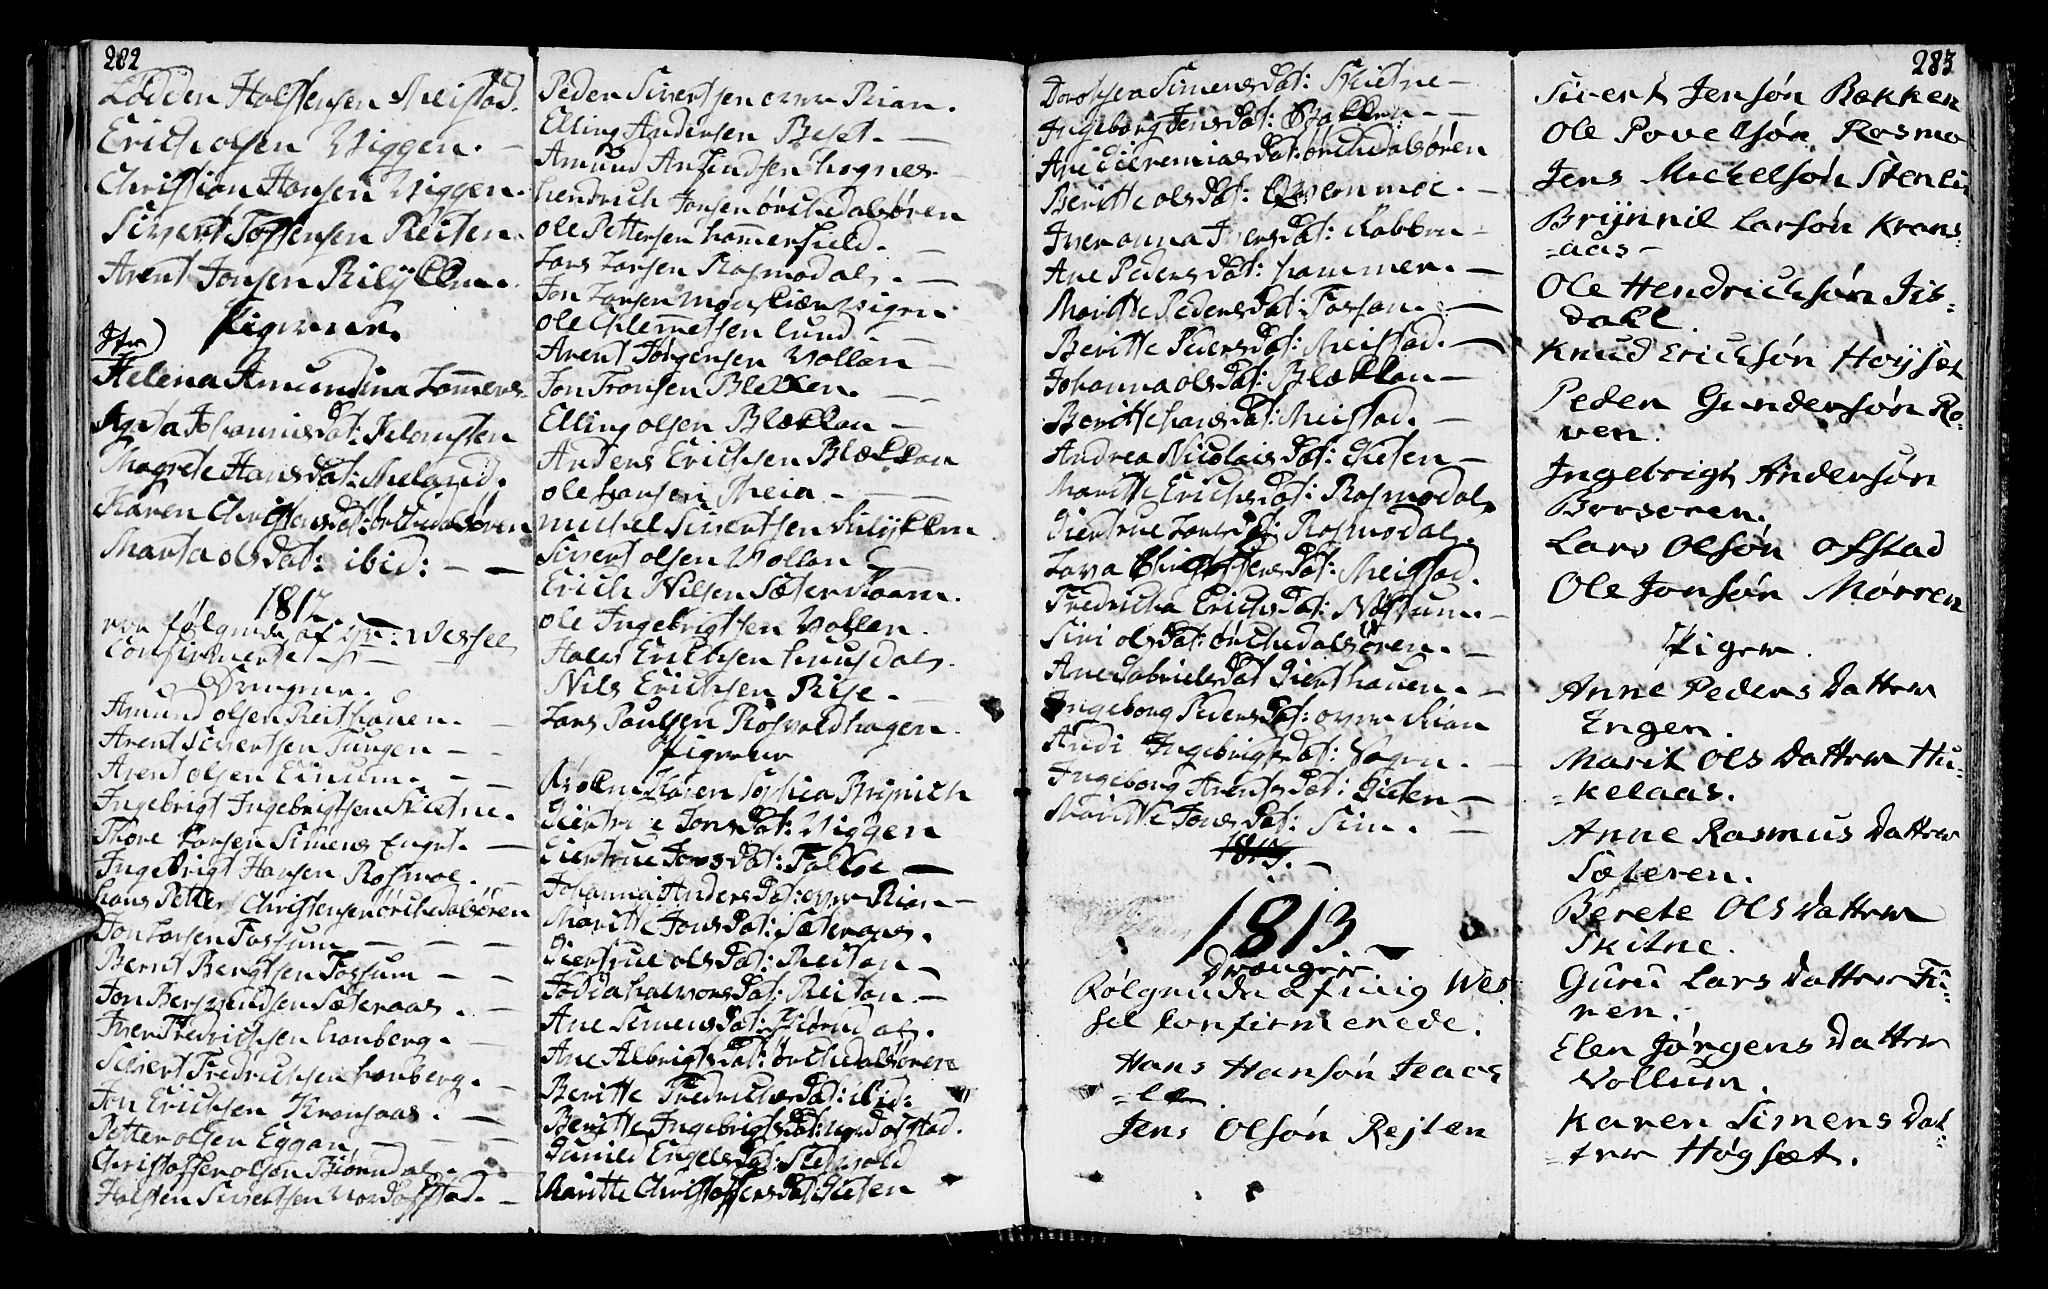 282
Lodden Halstensen Meistad.
Erich olsen Viggen. —
Christian Hansen Viggen.
Sivert Tostensen Reiten.
Arent Jonsen
Pigerne.
Jfr
Helena Amundina
Agnta Johannis Dat:
Magrete Hans Dat: Meland.
Karen Christens Dat: örchedalsören
Marta ols Dat: ibid: — —
1812
ere følgende af Hr: Wessel
Confirmeret
Drengene.
Amund olsen Reithauen. —
Arent Sivertsen Tungen — —
Arent olsen Einum. — —
Ingebrigt Ingebrigtsen Skietne.
Thore Larsen Simens Enget. —
Ingebrigt Hansen Rosmoe. —
Hans Petter Christensen örchedalsören
Jon Larsen Fossum — — —
Bernt Bengtsen Fossum — —
Jon Bersvendsen Sæteraas. —
Iver Fredrichsen Honberg. —
Sivert Fredrichsen Honberg. —
Jon Erichsen Kransaas. —
Petter olsen Eggan — — —
Christoffer olsen Biörndal. —
Halsten Sivertsen Nordofstad. —
Peder Sivertsen over Rian.
Elling Andersen Beset. —
Amund Amundsen Hognes. —
Hendrich Jonsen örchedalsören
ole Pettersen Hammersfield. —
Lars Larsen Rosmodal. —
Jon Larsen
ole Clemetsen Lund. —
Arent Jörgensen Vollan —
Jon Tronsen Blekken. — —
Elling olsen Blækkan —
Anders Erichsen Blækkan
ole Hansen Meia — — —
Michel Sivertsen
Sivert olsen Vollan —
Erich Nilsen
ole Ingebrigtsen Vollen.
Erichsen Huusdal.
Nils Erichsen Rise. —
Lars Paulsen Rosvoldhagen.
Pigerne
Karen Sophia
Giertrue Jons Dat: Viggen
Giertrue Jons Dat: —
Johanna Anders Dat: over Rian —
Maritte Jons Dat: Sæteraas.
Giertrue ols Dat: Reitan —
Halvors Dat: Reitan —
Ane Simens Dat: Biörndal.
Ane Albrigts Dat: örchedalsören
Beritte Fredrichs Dat: ibid:
Beritte Ingebrigts Dat:
Gunild Engels Dat:
Maritte Christoffers Dat: Gieten
283
Dorothea Simens Dat: Skietne —
Ingeborg Jens Dat: — —
Ane Jeremias Dat: örchedalsören
Beritte ols Dat: —
Iveranna Ivers Dat: —
Ane Peders Dat: Hammer. —
Maritte Peders Dat: Fossan. —
Beritte Peders Dat: Meistad. —
Johanna ols Dat: Blækkan —
Beritte Hans Dat: Meistad. —
Andrea Nicolais Dat: Gieten —
Maritte Erichs Dat: Rosmodal.
Giertrue Lars Dat: Rosmodal.
Lava Christoffers Dat: Meistad.
Fredricka Erichs Dat: —
Siri ols Dat: örchedalsören. —
Ane Gabriels Dat Gierthauen. —
Ingeborg Peders Dat: over Rian
Andi Ingebrigts Dat: —
Ingeborg Arents Dat: Gieten —
Maritte Jons Dat: Sim. —
1813. —
1813. —
Drænger
Følgende af mig Wes
sel Confirmerede.
Hans Hansón Jeaas
=le.
Jens Olsón Rejten
Sivert Jensón Bækken
Ole Povelsón Rosmo
Jens Michelsón
Brÿnnil Larsón Krans=
=aas —
Ole Hendricksón Jis=
dahl.
Knud Ericksón Hoÿset
Peder Gundersón Ro=
ven.
Ingebrigt Andersón
Börseren.
Lars Olsón Ofstad
Ole Jonsón Mórren
Piger.
Anne Peders Datter
Engen.
Marit Ols Datter Hu=
=kelaas.
Anne Rasmus Datter
Sæteren.
Berete Ols Datter
Skitne.
Guru Lars Datter Fu=
ren.
Elen Jørgens Datter
Vollum.
Karen Simens Dat=
=ter Høgset.